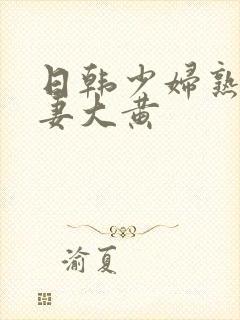 日韩少妇熟
妻大黄
渝夏